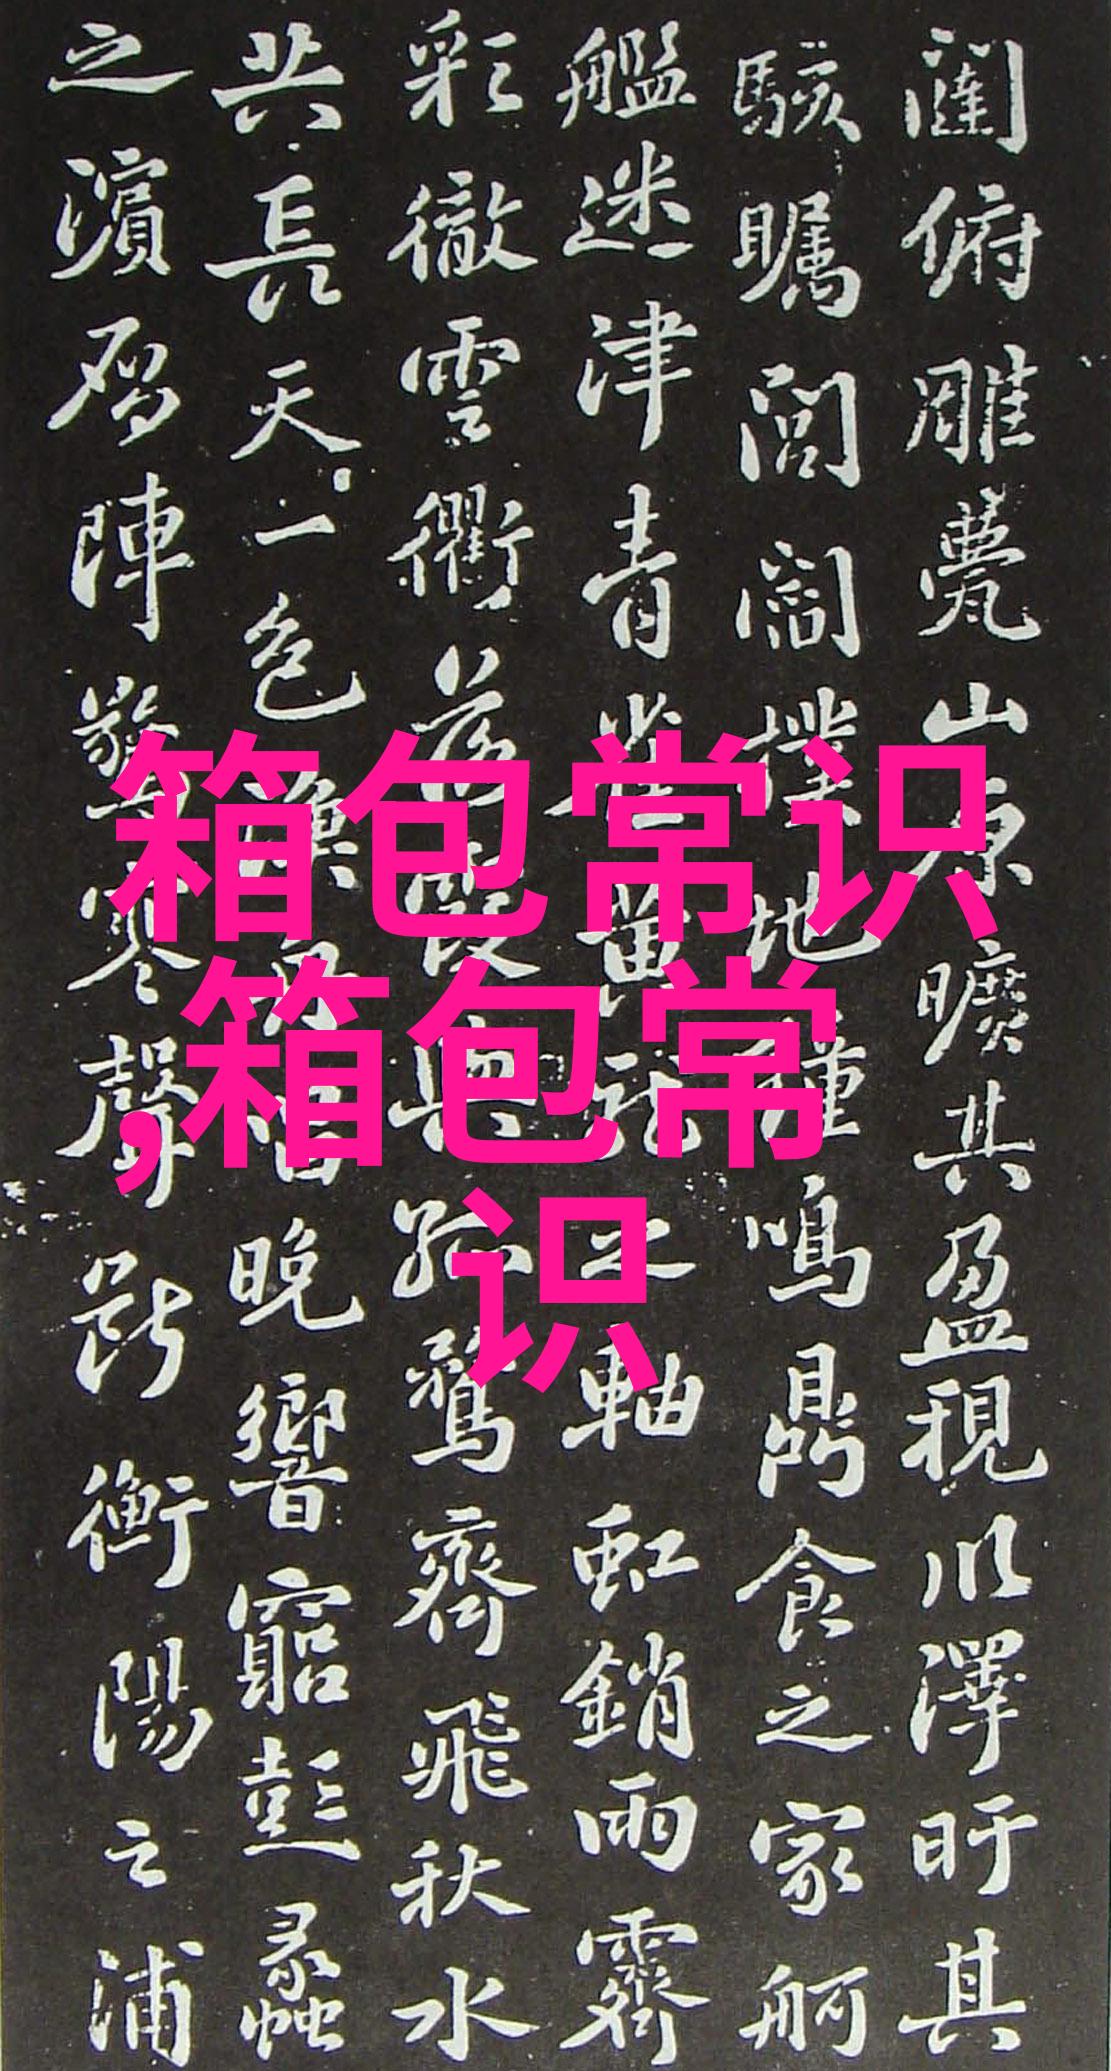 闥俯雕甍山原曠其盈視川澤盱其
駭矚閭閻撲地鍾鳴鼎食之家舸
艦迷津青雀黃龍之軸虹銷雨霽
彩徹雲衢落霞與孤鶩齊飛秋水
共長天一色漁舟唱晚響窮彭蠡
之濱雁陣驚寒聲斷衡陽之浦
箱包常识
,箱包常
识